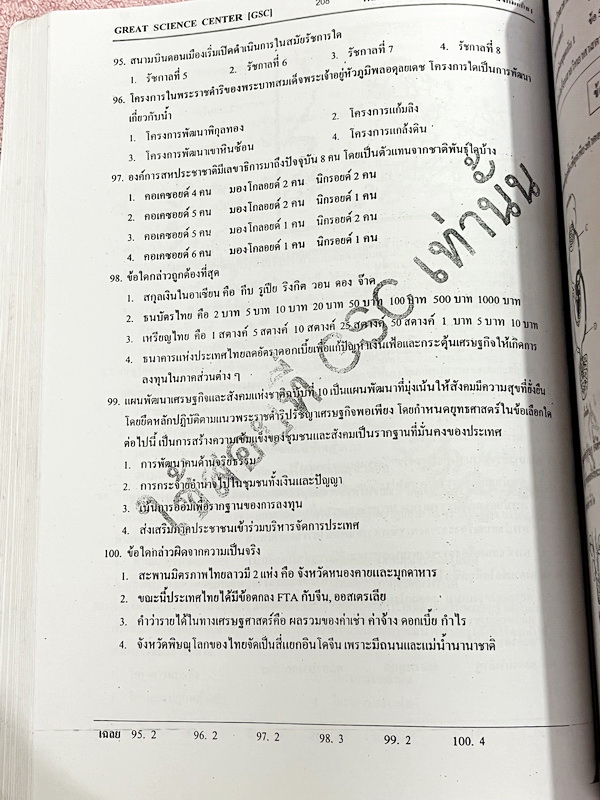 GREAT SCIENCE CENTER [GSC]
208
95. สนามบินดอนเมืองเริ่มเปิดดำเนินการในสมัยรัชการใด
1. รัชกาลที่ 5 2. รัชกาลที่ 6 3. รัชกาลที่ 7 4. รัชกาลที่ 8
96. โครงการในพระราชดำริของพระบาทสมเด็จพระเจ้าอยู่หัวภูมิพลอดุลยเดช โครงการใดเป็นการพัฒนา
เกี่ยวกับน้ำ
1. โครงการพัฒนาพิกุลทอง 2. โครงการแก้มลิง
3. โครงการพัฒนาเขาหินซ้อน 4. โครงการแกล้งดิน
97. องค์การสหประชาชาติมีเลขาธิการมาถึงปัจจุบัน 8 คน โดยเป็นตัวแทนจากชาติพันธุ์ใดบ้าง
1. คอเคซอยด์ 4 คน มองโกลอยด์ 2 คน นิกรอยด์ 2 คน
2. คอเคซอยด์ 5 คน มองโกลอยด์ 2 คน นิกรอยด์ 1 คน
3. คอเคซอยด์ 5 คน มองโกลอยด์ 1 คน นิกรอยด์ 2 คน
4. คอเคซอยด์ 6 คน มองโกลอยด์ 1 คน นิกรอยด์ 1 คน
98. ข้อใดกล่าวถูกต้องที่สุด
1. สกุลเงินในอาเซียน คือ กีบ รูเปีย ริงกิต วอน ดอง จ๊าด
2. ธนบัตรไทย คือ 2 บาท 5 บาท 10 บาท 20 บาท 50 บาท 100 บาท 500 บาท 1000 บาท
3. เหรียญไทย คือ 1 สตางค์ 5 สตางค์ 10 สตางค์ 25 สตางค์ 50 สตางค์ 1 บาท 5 บาท 10 บาท
4. ธนาคารแห่งประเทศไทยลดอัตราดอกเบี้ยเพื่อแก้ปัญหาเงินเฟ้อและกระตุ้นเศรษฐกิจให้เกิดการ
ลงทุนในภาคส่วนต่าง ๆ
99. แผนพัฒนาเศรษฐกิจและสังคมแห่งชาติฉบับที่ 10 เป็นแผนพัฒนาที่มุ่งเน้นให้สังคมมีความสุขที่ยั่งยืน
โดยยึดหลักปฏิบัติตามแนวพระราชดำริปรัชญาเศรษฐกิจพอเพียง โดยกำหนดยุทธศาสตร์ในข้อเลือกใด
ต่อไปนี้ เป็นการสร้างความเข้มแข็งของชุมชนและสังคมเป็นรากฐานที่มั่นคงของประเทศ
1. การพัฒนาคนด้านจริยธรรม
2. การกระจายอำนาจไปในชุมชนทั้งเงินและปัญญา
3. เน้นการออมเพื่อรากฐานของการลงทุน
4. ส่งเสริมภาคประชาชนเข้าร่วมบริหารจัดการประเทศ
100. ข้อใดกล่าวผิดจากความเป็นจริง
1. สะพานมิตรภาพไทยลาวมี 2 แห่ง คือ จังหวัดหนองคายและมุกดาหาร
2. ขณะนี้ประเทศไทยได้มีข้อตกลง FTA กับจีน, ออสเตรเลีย
3. คำว่ารายได้ในทางเศรษฐศาสตร์คือ ผลรวมของค่าเช่า ค่าจ้าง ดอกเบี้ย กำไร
4. จังหวัดพิษณุโลกของไทยจัดเป็นสี่แยกอินโดจีน เพราะมีถนนและแม่น้ำนานาชาติ
เฉลย 95. 2 96. 2 97. 2 98. 3 99. 2 100. 4